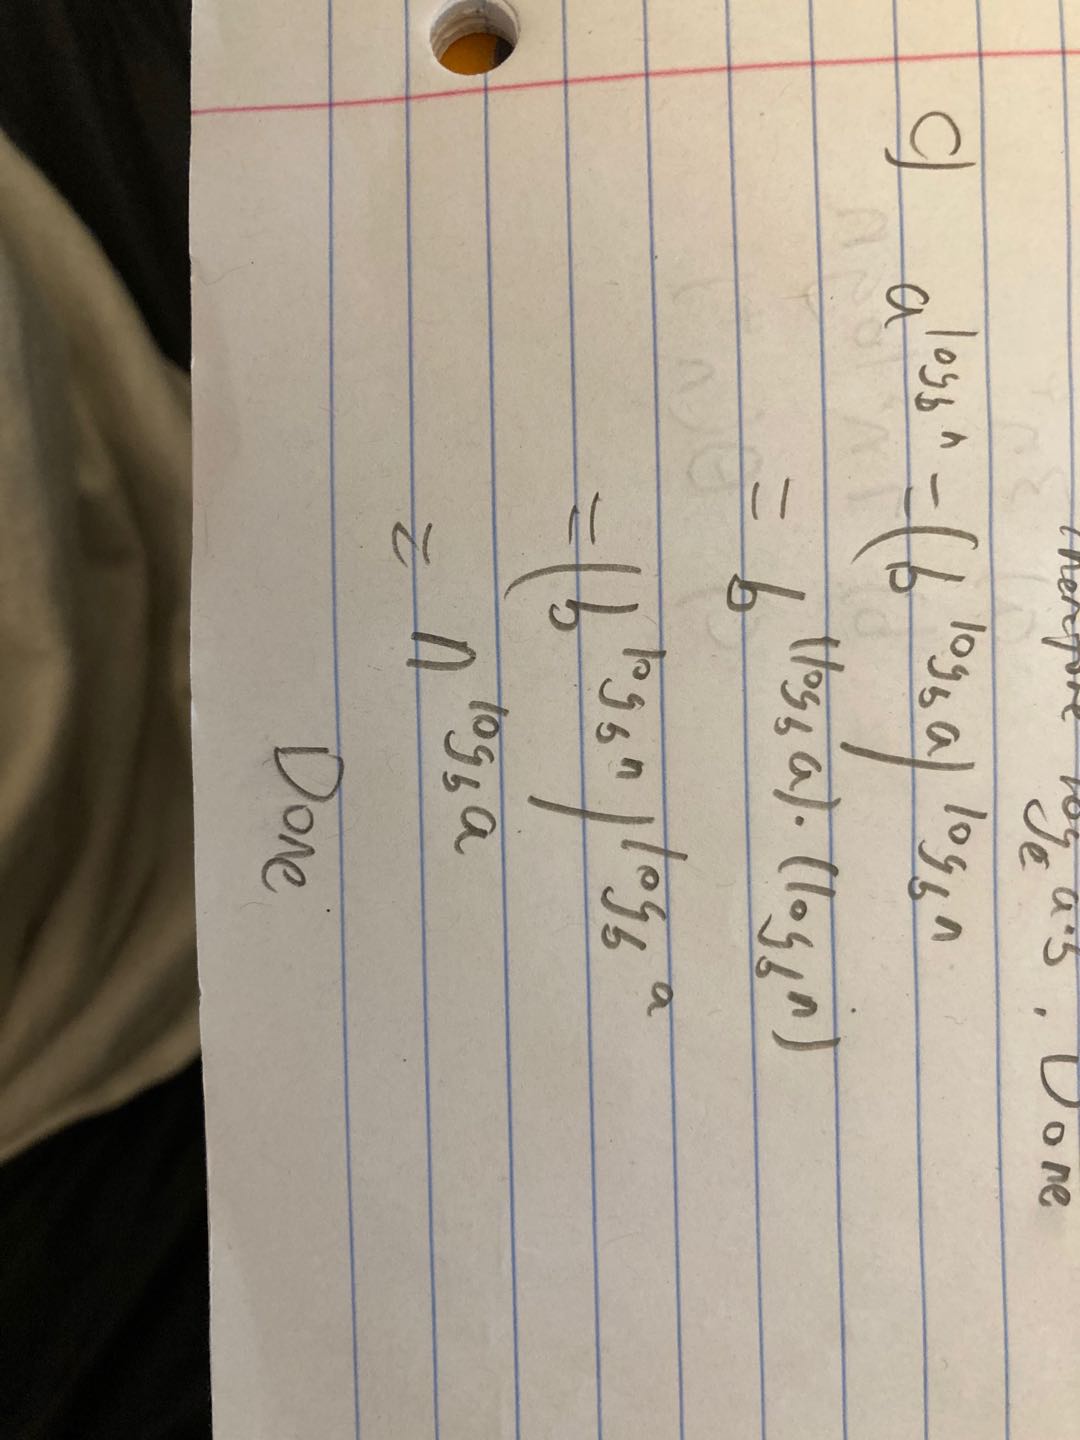 Therefore log_e a·b. Done
c) a^{log_b n} = (b^{log_b a})^{log_b n}
= b^{(log_b a)·(log_b n)}
= (b^{log_b n})^{log_b a}
= n^{log_b a}
Done